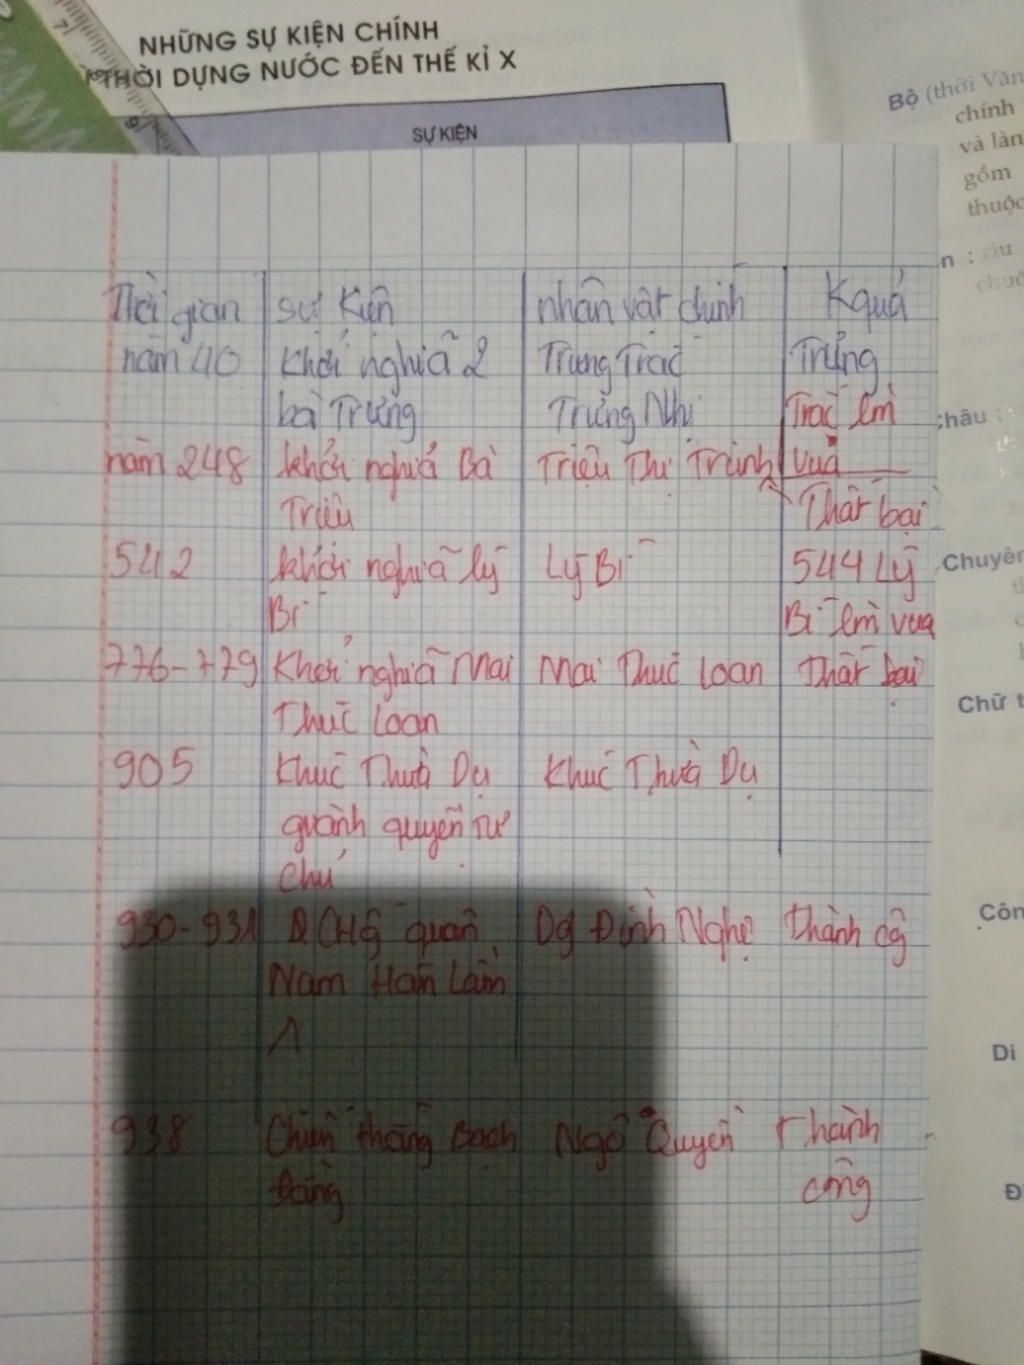 NHỮNG SỰ KIỆN CHÍNH
THỜI DỰNG NƯỚC ĐẾN THẾ KỈ X
SỰ KIỆN
Bộ (thời Văn
chính
và làn
gồm
thuộc
n : rìu
Châu :
Chuyên
Chữ t
Côn
Di
Đ
Thời gian sự kiện nhân vật chính Kquả
năm 40 khởi nghĩa 2 Trưng Trắc Trưng
bà Trưng Trưng Nhị Trắc lm
năm 248 khởi nghĩa Bà Triệu Thị Trinh vua
Triệu Thất bại
542 khởi nghĩa lý Lý Bí 544 Lý
Bí Bí lm vua
776-779 Khởi nghĩa Mai Mai Thúc Loan thất bại
Thúc Loan
905 Khúc Thừa Dụ Khúc Thừa Dụ
giành quyền tự
chủ
930-931 CHố quân Dg Đình Nghệ thành cg
Nam Hán Lần
1
938 Chiến thắng Bạch Ngô Quyền Thành
Đằng công